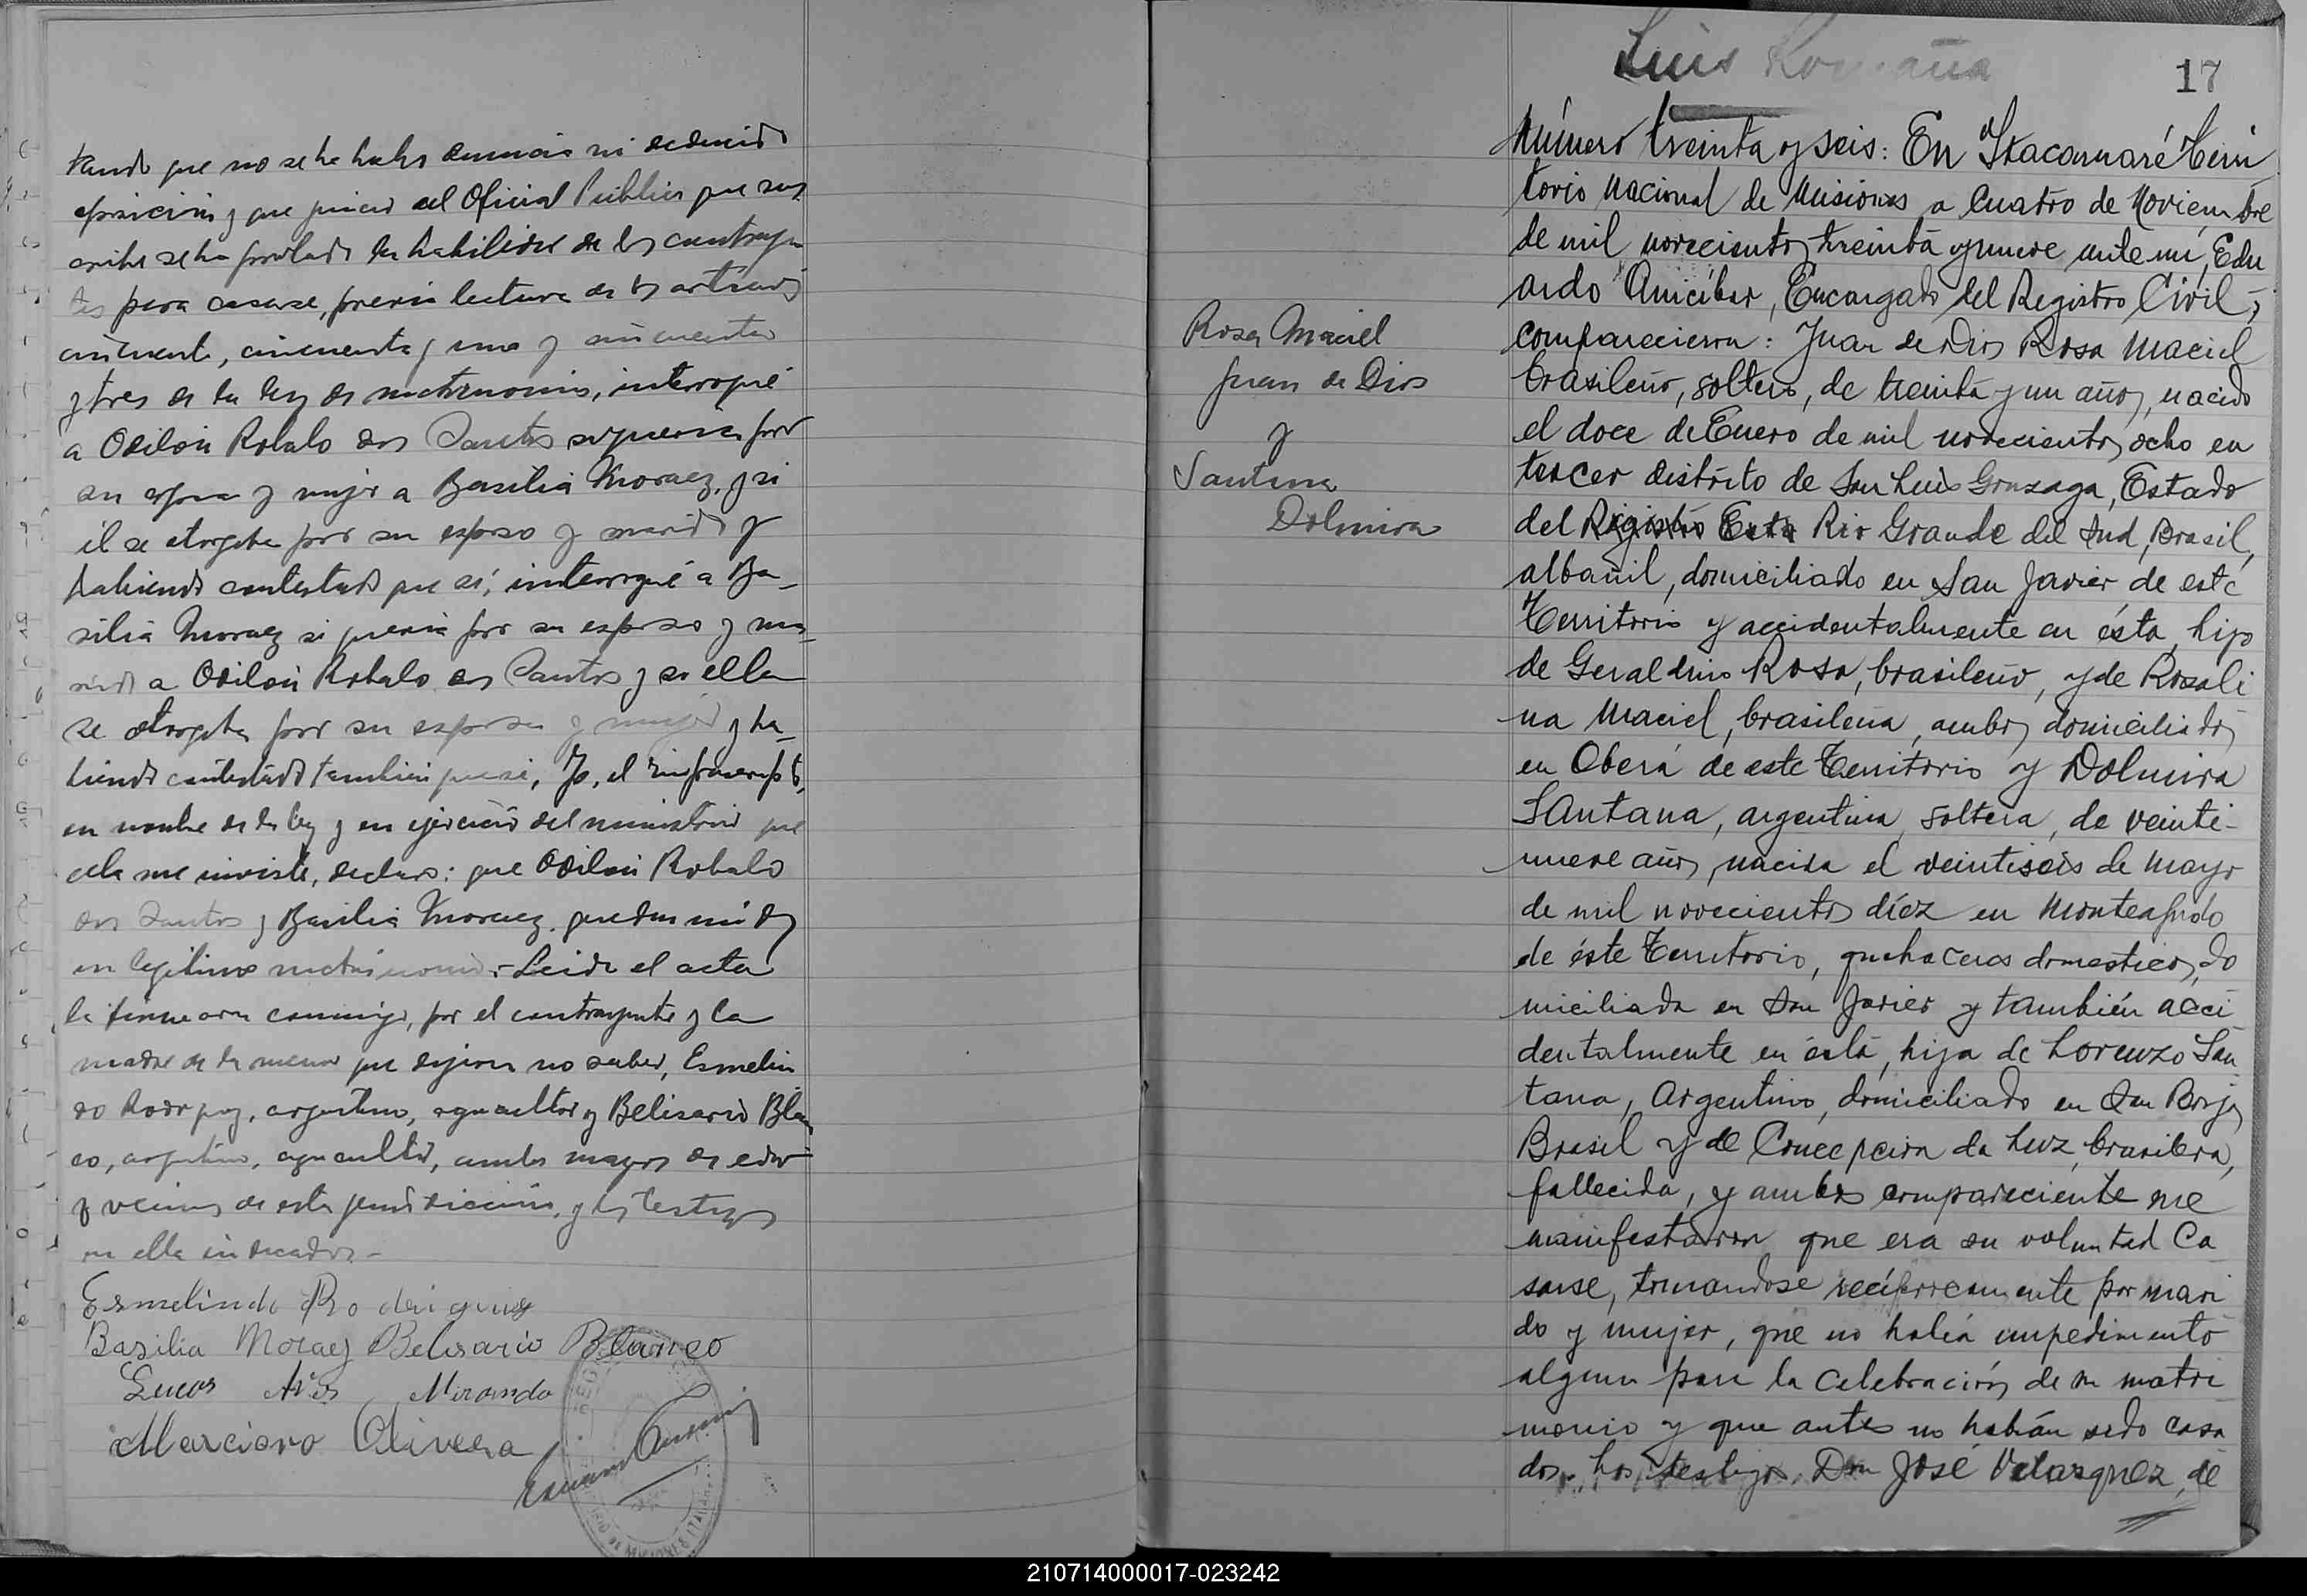 tando que no se ha hecho denuncia ni deducido
oposición y que juicio del Oficial Público que sus
cribe se ha probado la habilidad de los contrayen
tes para casarse, previa lectura de los artículos
cincuenta, cincuenta y uno y cincuenta
y tres de la ley de matrimonio, interrogué
a Odilon Robalo dos Santos si quería por
su esposa y mujer a Basilia Moraez, y si
él se otorgaba por su esposo y marido y
habiendo contestado que sí, interrogué a Ba-
silia Moraez si quería por su esposo y ma-
rido a Odilon Robalo dos Santos y si ella
se otorgaba por su esposa y mujer y ha-
biendo contestado también que sí, Yo, el infrascripto,
en nombre de la ley y en ejercicio del ministerio que
ella me inviste, declaro: que Odilon Robalo
dos Santos y Basilia Moraez quedan unidos
en legitimo matrimonio.- Leida el acta
la firmaron conmigo, por el contrayente y la
madre de la menor que dijeron no saber, Esmelin
do Rodriguez, argentino, agricultor y Belisario Blan
co, argentino, agricultor, ambos mayores de edad
y vecinos de esta jurisdicción, y los testigos
en ella indicados.-
Esmelindo Rodriguez
Basilia Moraez Belisario Blanco
Lucas Miranda
Marciano Olivera
Luis Romaña
17
Rosa Maciel
Juan de Dios
y
Santana
Dolmira
Número treinta y seis: En Itacaruaré Terri
torio Nacional de Misiones a cuatro de Noviembre
de mil novecientos treinta y nueve ante mi, Edu
ardo Anicibar, Encargado del Registro Civil,
comparecieron: Juan de Dios Rosa Maciel
brasileño, soltero, de treinta y un años, nacido
el doce de Enero de mil novecientos ocho en
tercer distrito de San Luis Gonzaga, Estado
del Registro Esta Rio Grande del Sud, Brasil,
albañil, domiciliado en San Javier de este
Territorio y accidentalmente en ésta, hijo
de Geraldino Rosa, brasileño, y de Rosali
na Maciel, brasileña, ambos domiciliados
en Oberá de este Territorio y Dolmira
Santana, argentina, soltera, de veinti-
nueve años, nacida el veintiseis de Mayo
de mil novecientos díez en Monteagudo
de éste Territorio, quehaceres domesticos, do
miciliada en San Javier y también acci
dentalmente en ésta, hija de Lorenzo San
tana, Argentino, domiciliado en San Borja
Brasil y de Concepcion da Luz, brasilera,
fallecida, y ambos compareciente me
manifestaron que era su voluntad Ca
sarse, tomandose recíprocamente por mari
do y mujer, que no había impedimento
alguno para la celebración de su matri
monio y que antes no habían sido casa
dos. Los testigos Don José Velazquez, de
210714000017-023242